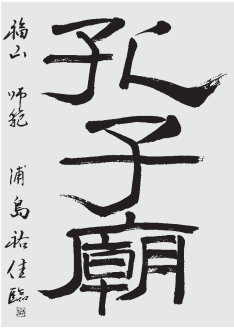 孔子廟
福山 師範 浦島祐佳臨